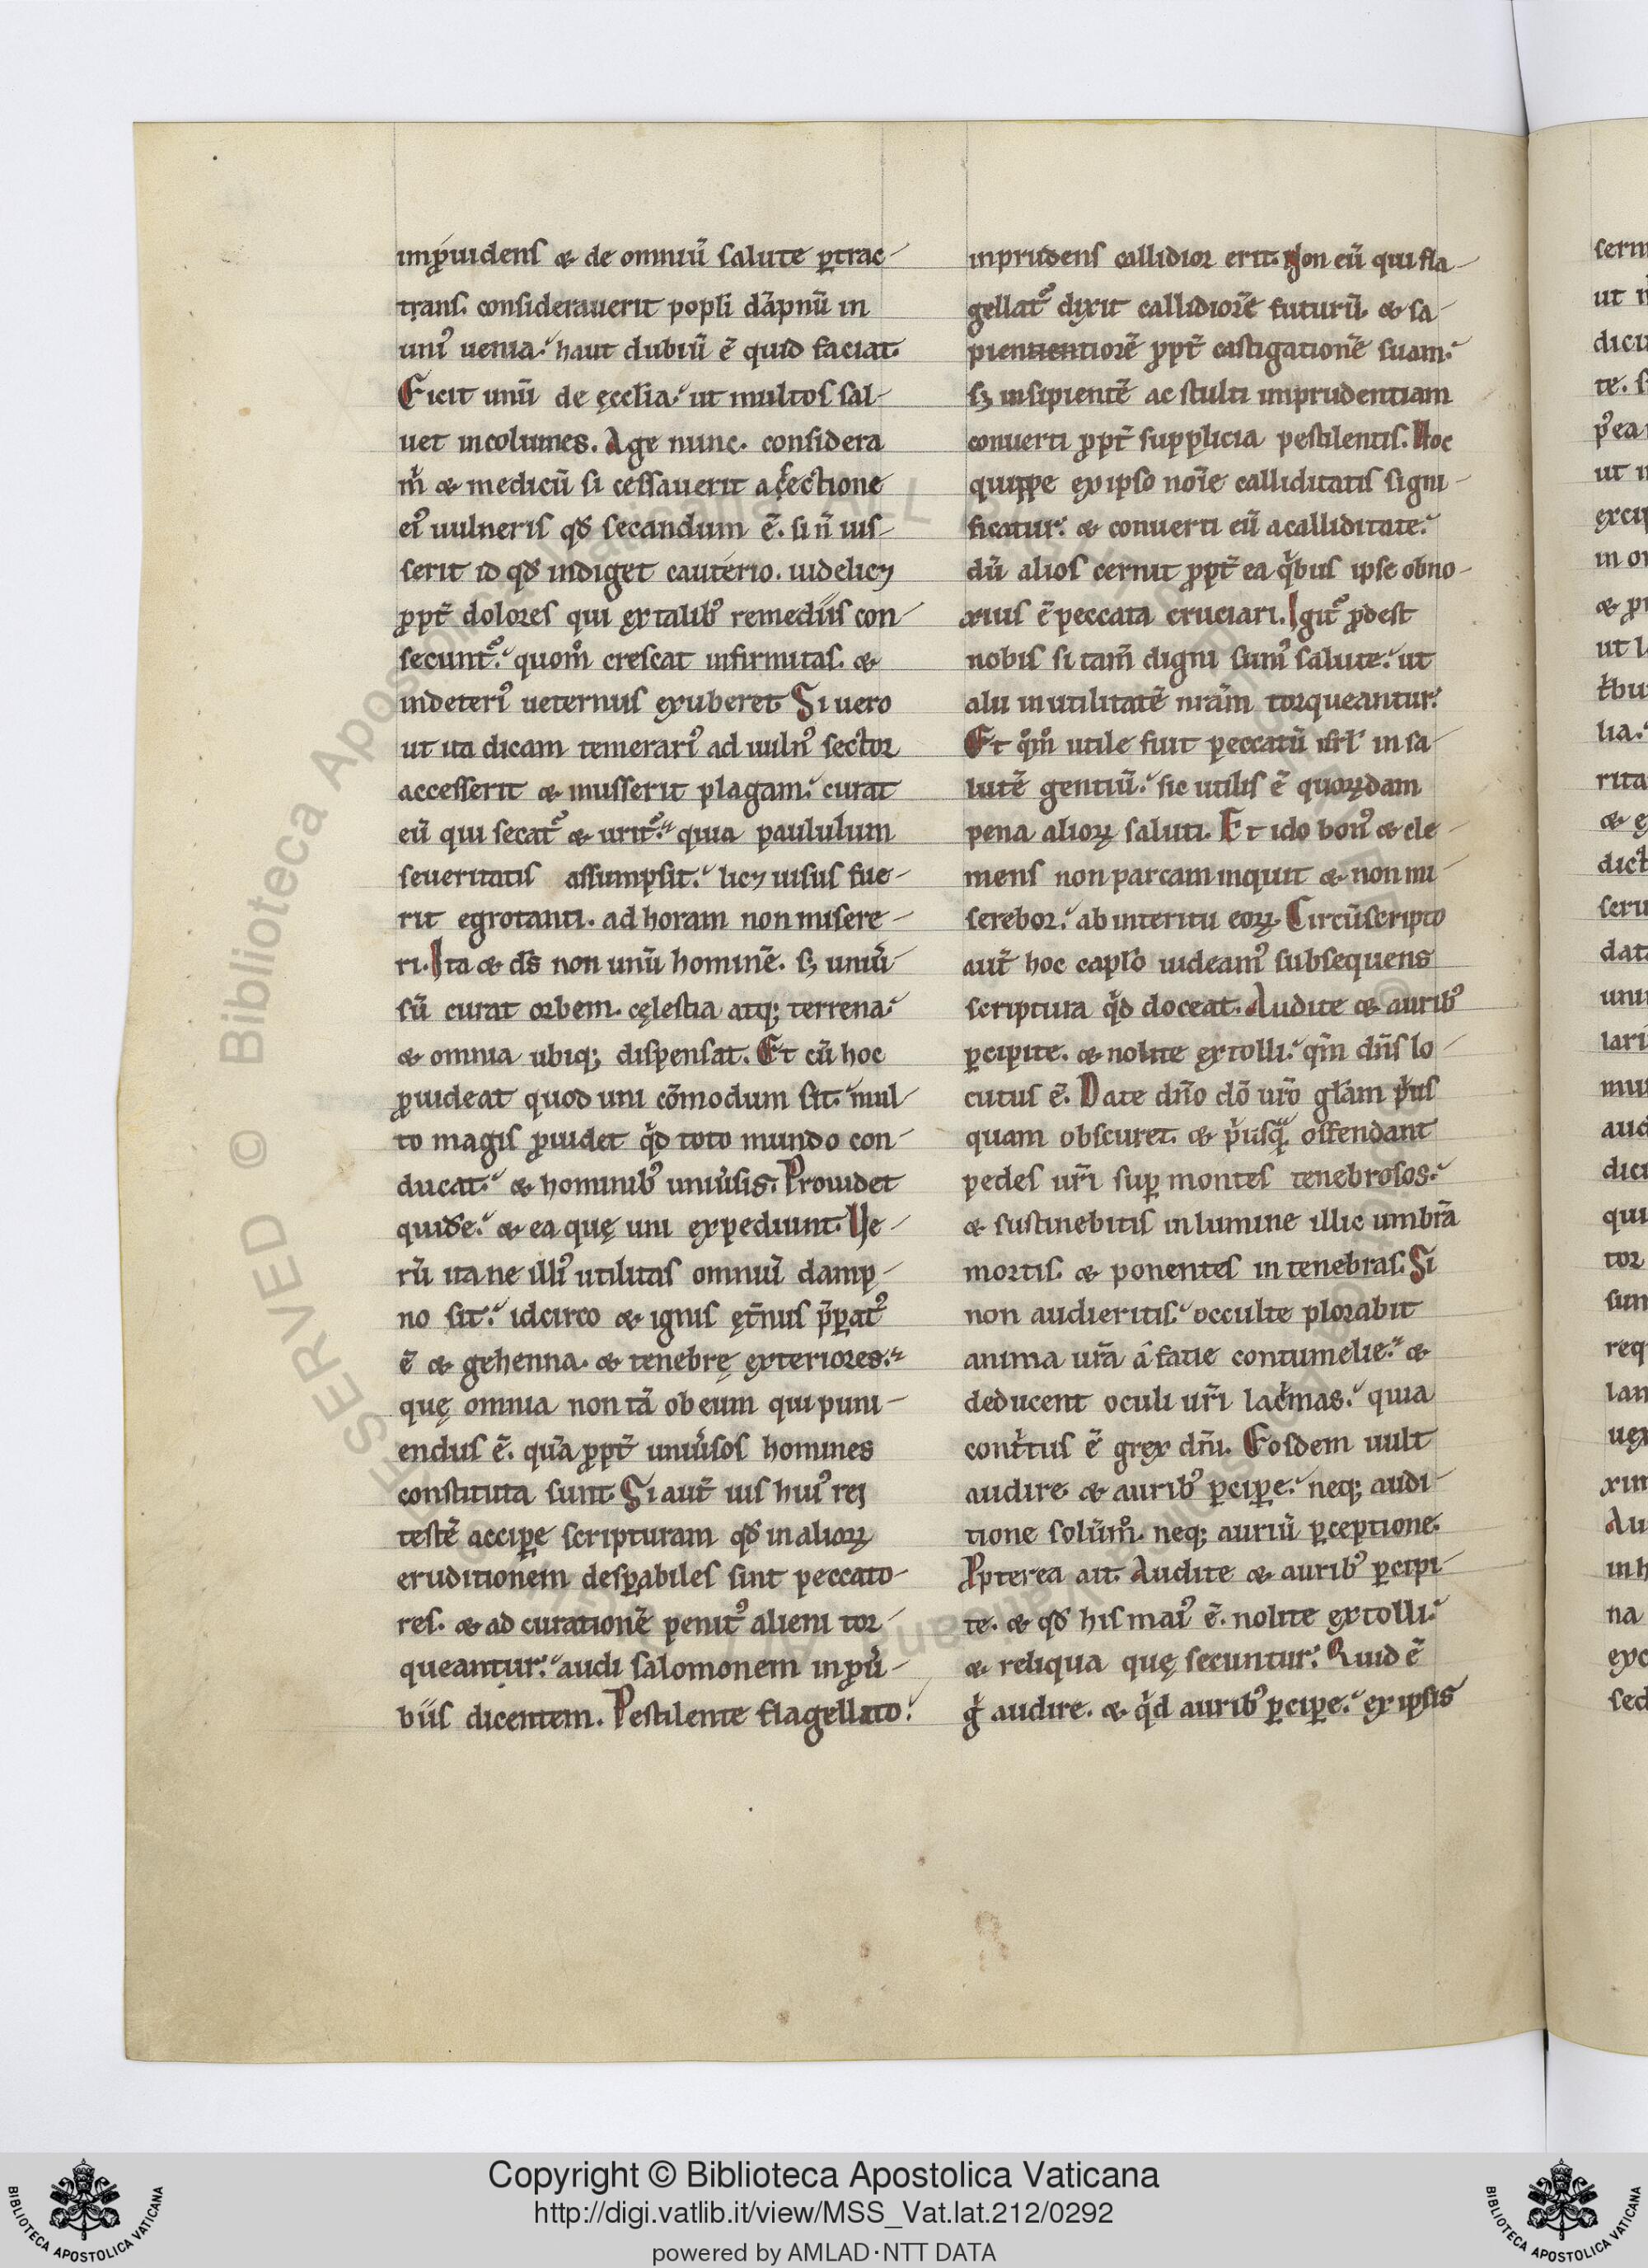 imꝓuidens & de omniū salute ꝑtrac-
tans. considerauerit popli dāpnū in
uniꝰ uenia. haut dubiū ē quid faciat.
Eicit unū de ęcclia. ut multos sal-
uet incolumes. Age nunc. considera
m & medicū si cessauerit a sectione
eiꝰ uulneris qđ secandum ē. si n̄ ius-
serit id qđ indiget cauterio. uidelicꝫ
ꝓpt̄ dolores qui ex talibꝰ remediis con-
secunt᷑. quom̊ crescat infirmitas. &
in deteriꝰ ueternus exuberet. Si uero
ut ita dicam temerariꝰ ad uulnꝰ sector
accesserit & iusserit plagam. curat
eū qui secat᷑ & urit᷑. quia paululum
seueritatis assumpsit. licꝫ uisus fue-
rit egrotanti. ad horam non misere-
ri. Ita & ds̄ non unū hominē. sꝫ uniu̓-
sū curat orbem. cęlestia atqꝫ terrena.
& omnia ubiqꝫ dispensat. Et cū hoc
ꝓuideat quod uni cōmodum sit. mul-
to magis ꝓuidet qͥd toto mundo con-
ducat. & hominibꝰ uniu̓sis. Prouidet
quidē. & ea quę uni expediunt. Ue-
rū ita ne illiꝰ utilitas omniū damp-
no sit. idcirco & ignis ęt̄nus p̄ꝑatꝰ
ē & gehenna. & tenebrę exteriores.
quę omnia non tā ob eum qui puni-
endus ē. quā ꝓpt̄ uniu̓sos homines
constituta sunt. Si aut̄ uis huiꝰ rei
testē acciꝑe scripturam qđ in alioꝝ
eruditionem desꝑabiles sint peccato-
res. & ad curationē penitꝰ alieni tor-
queantur. audi salomonem in ꝓu̓-
biis dicentem. Pestilente flagellato.
inprudens callidior erit. Non eū qui fla-
gellat᷑ dixit callidiorē futurū. & sa-
pientientiorē ꝓpt̄ castigationē suam.
sꝫ insipientē ac stulti imprudentiam
conuerti ꝓpt̄ supplicia pestilentis. Hoc
quippe ex ipso noīe calliditatis signi-
ficatur. & conuerti eū a calliditate.
dū alios cernit ꝓpt̄ ea qͥbus ipse obno-
xius ē peccata cruciari. Igit᷑ ꝓdest
nobis si tam̄ digni sumꝰ salute. ut
alii in utilitatē nrām torqueantur.
Et qm̊ utile fuit peccatū isrl̄ in sa-
lutē gentiū. sic utilis ē quoꝝdam
pena alioꝝ saluti. Et ido bonꝰ & cle-
mens non parcam inquit & non mi-
serebor. ab interitu eoꝝ. Circūscripto
aut̄ hoc caplō uideamꝰ subsequens
scriptura qͥd doceat. Audite & auribꝰ
ꝑcipite. & nolite extolli. qm̄ dn̄s lo-
cutus ē. Date dn̄o dō uro̅ glām pͥus
quam obscuret. & pͥusqͣ offendant
pedes urī suꝑ montes tenebrosos.
& sustinebitis in lumine illic umbrā
mortis. & ponentes in tenebras. Si
non audieritis. occulte plorabit
anima urā a facie contumelie. &
deducent oculi urī lacͥmas. quia
contͥtus ē grex dn̄i. Eosdem uult
audire & auribꝰ ꝑciꝑe. neqꝫ audi-
tione solūm̊. neqꝫ auriū ꝑceptione.
Ꝓpterea ait. Audite & auribꝰ ꝑcipi-
te. & qđ his maiꝰ ē. nolite extolli.
& reliqua quę secuntur. Quid ē
gͥ audire. & qͥd auribꝰ ꝑciꝑe. ex ipsis
Copyright © Biblioteca Apostolica Vaticana
http://digi.vatlib.it/view/MSS_Vat.lat.212/0292
powered by AMLAD·NTT DATA
BIBLIOTECA APOSTOLICA VATICANA
BIBLIOTECA APOSTOLICA VATICANA